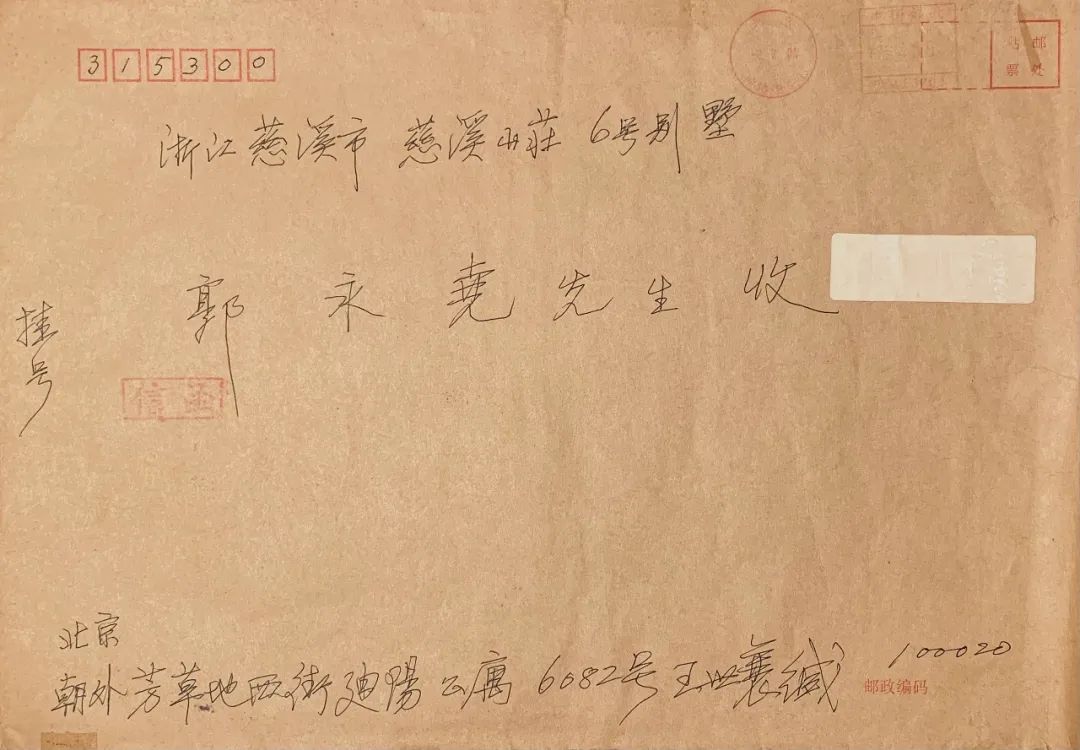 315300
邮
贴
票 处
浙江慈溪市 慈溪山莊 6号别墅
郭永堯先生 收
挂号
信函
北京
朝外芳草地西街迪陽公寓 6082号王世襄缄 100020
邮政编码